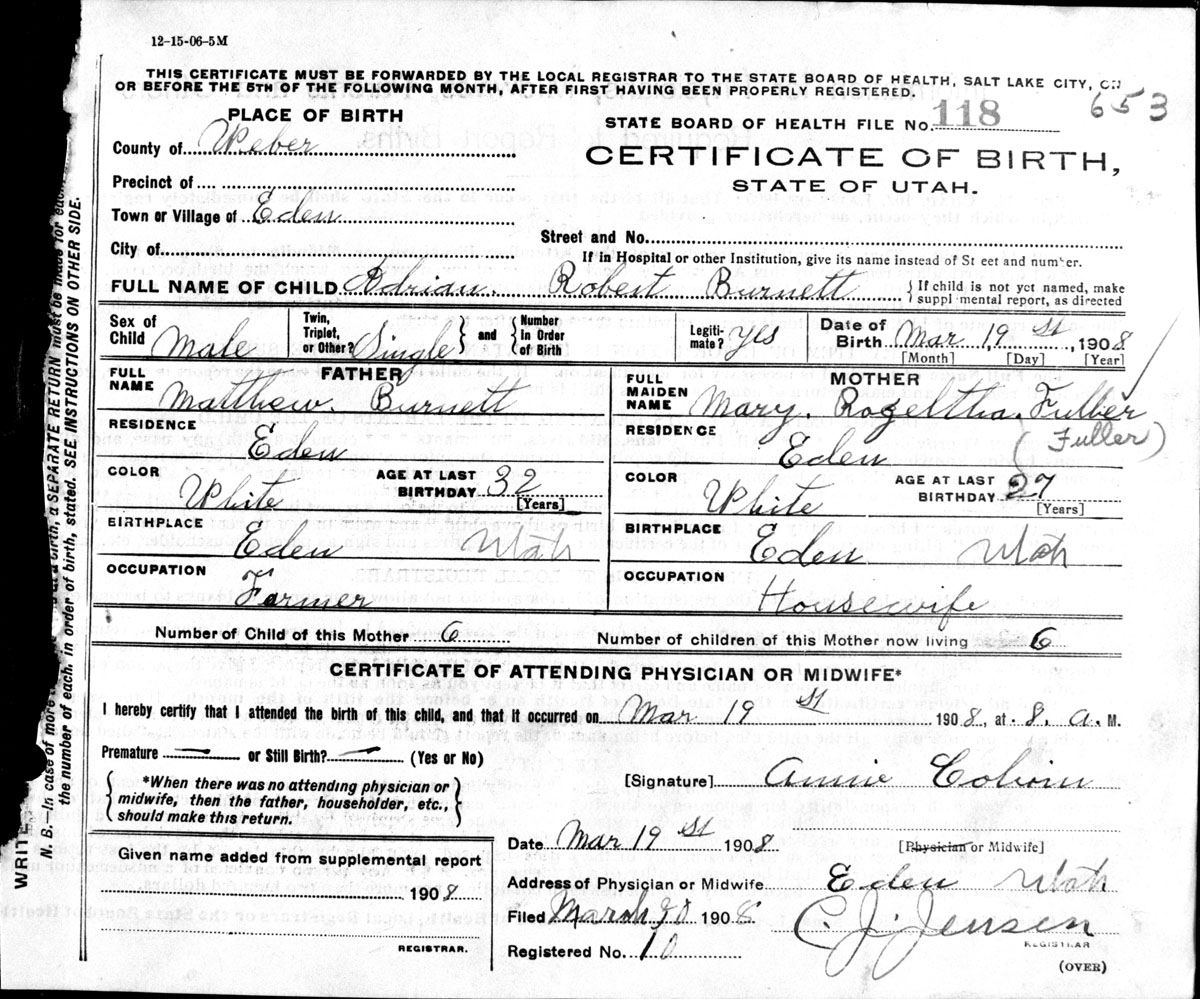 12-15-06-5M
THIS CERTIFICATE MUST BE FORWARDED BY THE LOCAL REGISTRAR TO THE STATE BOARD OF HEALTH, SALT LAKE CITY, ON
OR BEFORE THE 5TH OF THE FOLLOWING MONTH, AFTER FIRST HAVING BEEN PROPERLY REGISTERED.
653
PLACE OF BIRTH
STATE BOARD OF HEALTH FILE No. 118
County of Weber
CERTIFICATE OF BIRTH,
STATE OF UTAH.
Precinct of
Town or Village of Eden
Street and No.
City of
If in Hospital or other Institution, give its name instead of St eet and number.
FULL NAME OF CHILD Adrian Robert Burnett
{If child is not yet named, make
suppl mental report, as directed
Sex of Child Male
Twin, Triplet, or Other? Single } and { Number In Order of Birth
Legiti-mate? yes
Date of Birth Mar 19 st, 1908
[Month] [Day] [Year]
FATHER
FULL NAME Matthew. Burnett
RESIDENCE Eden
COLOR White
AGE AT LAST BIRTHDAY 32 [Years]
BIRTHPLACE Eden Utah
OCCUPATION Farmer
MOTHER
FULL MAIDEN NAME Mary. Rogeltha. Fulber
(Fuller)
RESIDENCE Eden
COLOR White
AGE AT LAST BIRTHDAY 27 [Years]
BIRTHPLACE Eden Utah
OCCUPATION Housewife
Number of Child of this Mother 6
Number of children of this Mother now living 6
CERTIFICATE OF ATTENDING PHYSICIAN OR MIDWIFE*
I hereby certify that I attended the birth of this child, and that it occurred on Mar 19 st 1908, at 8. a. M.
Premature — or Still Birth? — (Yes or No)
{*When there was no attending physician or
midwife, then the father, householder, etc.,
should make this return.}
[Signature] Annie
[Physician or Midwife]
Date Mar 19 st 1908
Address of Physician or Midwife Eden Utah
Filed March 20 1908 C. J. Jensen
REGISTRAR
Registered No. 10
(OVER)
Given name added from supplemental report
1908
REGISTRAR.
WRITE
N. B.—In case of more birth, a SEPARATE RETURN must be made for each,
the number of each, in order of birth, stated. SEE INSTRUCTIONS ON OTHER SIDE.